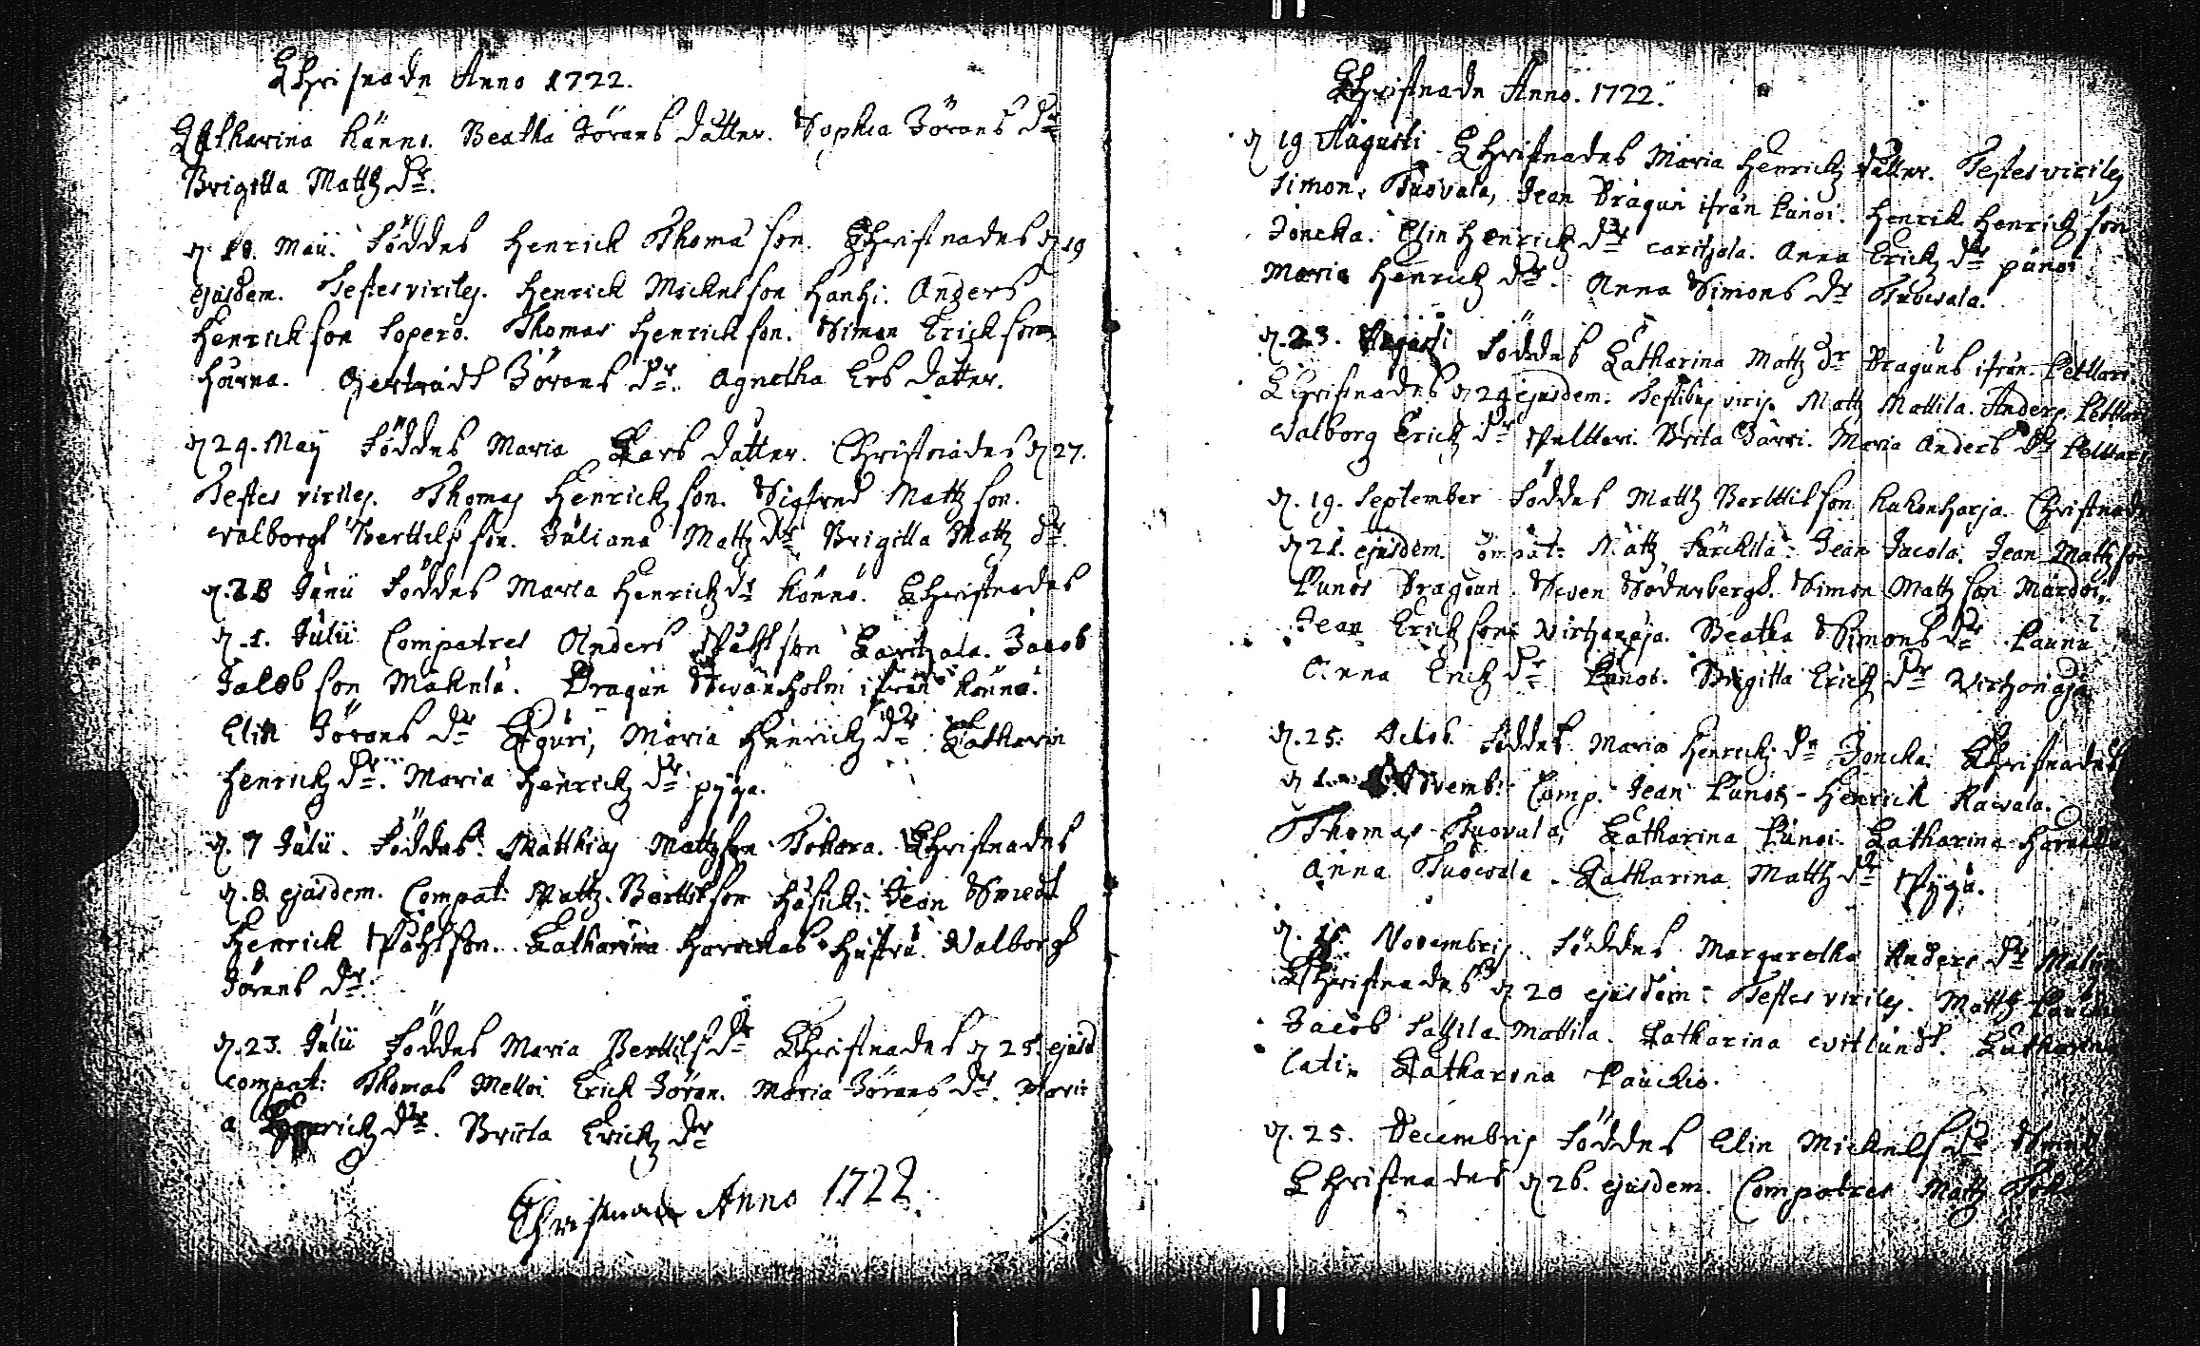 Christnade Anno 1722.
Catharina Känno. Beatha Jörans datter. Sophia Jörans dr
Brigitta Mattz dr.
d. 18. Maii. Föddes Henrick Thomæ son. Christnades d 19
ejusdem. Testes viriles. Henrick Mickelson Hanhi. Anders
Henrickson Sopero. Thomas Henrickson. Simon Erickson
Gertrudh Jörans dr. Agnetha Ers datter.
d 24. Maij Föddes Maria Lars datter. Christnades d 27.
Testes viriles. Thomas Henrickz son. Sigfred Mattz son.
Walborgh Berttils son. Juliana Mattz dr Brigitta Mattz dr.
d. 28 Junii Föddes Maria Henrickz dr Könnö. Christnades
d. 1. Julii Compatres Anders Påhlson Caritzala. Jacob
Jacobson Mäkelä. Dragun Swanholm ifrån Könnö.
Elin Jörans dr Maria Henrickz dr Catharin
Henrickz dr. Maria Henrickz dr pyga.
d. 7 Julii. Föddes. Matthias Mattzson Tokera. Christnades
d. 8 ejusdem. Compat: Mattz. Berttilson Jean Smedt
Henrick Påhlson. Catharina Harnickas hustru. Walborgh
Jörans dr.
d. 23. Julii Föddes Maria Berttils dr Christnades d 25. ejusd
compat: Thomas Melloi. Erick Jöran. Maria Jörans dr. Mari
a Henrickz dr. Briita Erickz dr
Christnade Anno 1722.
Christnade Anno. 1722.
d 19 Augusti Christnades Maria Henrickz datter. Testes viriles
Simon. Tuovala, Jean Dragun ifrån Punoi. Henrick Henrickz son
Joncka. Elin Henrickz dr caritzola. Anna Erickz dr punoi
Maria Henrickz dr. Anna Simons dr Tuowala.
d. 23. Augusti Föddes Catharina Mattz dr Draguns ifrån Pelttari.
Christnades d 24 ejusdem. Testibus viris. Mattz Mattila. Anders. Pelttari
Walborg Erickz dr Pelttari. Brita Järvi. Maria Anders dr Pelttari
d. 19. September Föddes Mattz Berttilson Kukonharja. Christnade
d 21. ejusdem. compat: Mattz Särckilä. Jean Jacola. Jean Mattz son
Punoi Dragoun. Swen Söderbergh. Simon Mattz son Mardoi.
Jean Erickson Virtzanoja. Beatha Simons dr Launu
Anna Erickz dr Punoi. Brigitta Erickz dr Virtzanoja
d. 25. Octob. Föddes Maria Henrickz dr Joncka. Christnades
d 1. Novemb: Comp. Jean Punoi - Henrick Rawala.
Thomas Tuovala, Catharina Punoi. Catharina
Anna Tuowala. Catharina Mattz dr Pyga.
d. 15. Novembris. Föddes Margaretha Anders dr
Christnades d 20 ejusdem. Testes viriles. Mattz
Jacob Mattila. Catharina Catharina
Catharina Pauckio.
d. 25. Decembris Föddes Elin Mickels dr
Christnades d 26. ejusdem. Compatres Mattz